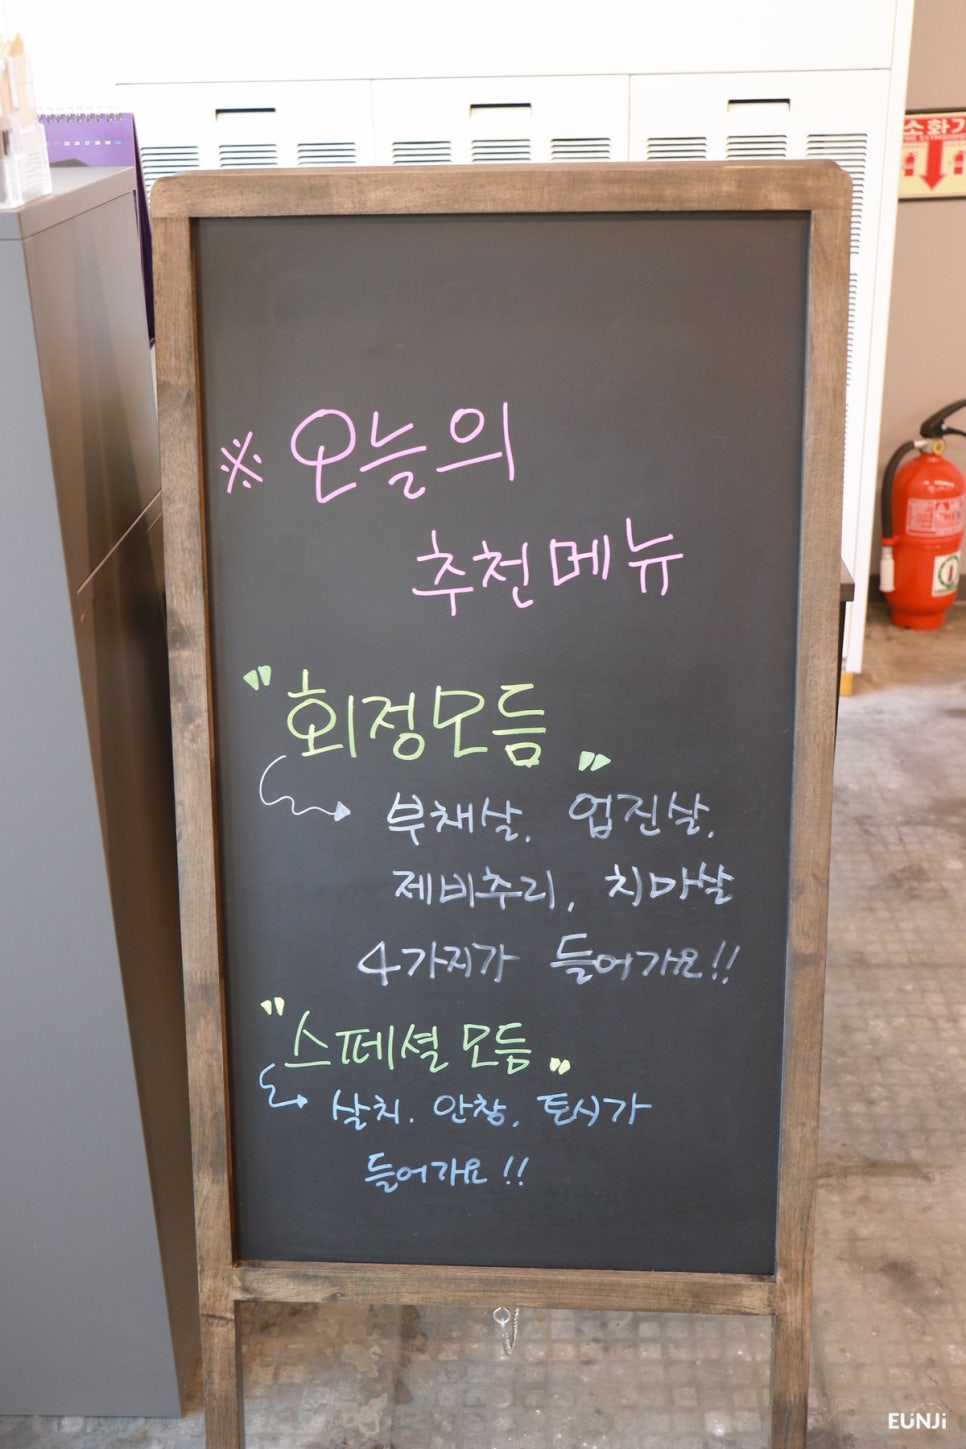 ※ 오늘의
추천메뉴
"회정모듬"
부채살, 업진살,
제비추리, 치마살
4가지가 들어가요!!
"스페셜 모듬"
살치, 안창, 토시가
들어가요!!
소화기
EUNJi